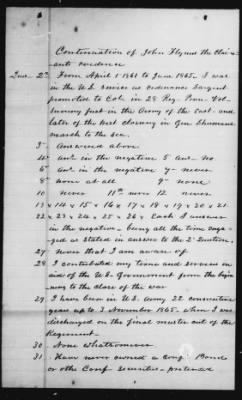 Continuation of John Flynns the Claim-
ants evidence
Ques. 2d From April 1 1861 to June 1865. I was
in the U.S. service as ordnance Sargent
promoted to Col. in 28 Reg. Penn. Vol-
first in the Army of the East. and
later of the West closing in Gen Shermans
march to the sea.
3- Answered above
4th ans. in the negative 5 ans. No
6th ans. in the negative 7 - never
8 none at all 9th none
10 never 11th nor 12 never
13 x 14 x 15 x 16 x 17 x 18 x 19 x 20 x 21.
22 x 23 x 24 x 25 x 26 x Each I answer
in the negative - being all the time enga-
ged as stated in answer to the 2d Question.
27 never that I am aware of.
28 I contributed my time and services in
aid of the U.S. Government from the begin
ning to the close of the war
29 I have been in U.S. Army 22 consecutive
years up to 3 November 1865. when I was
discharged on the final muster out of the
Regiment.
30. None whatsoever
31. Have never owned a Conf. Bond
or other Conf. securities - pretended